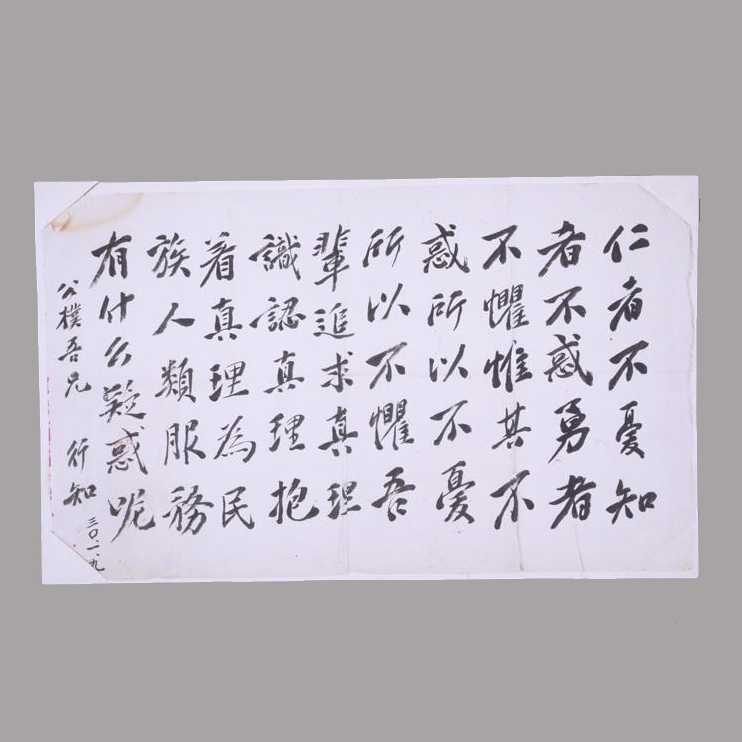 仁者不憂知
者不惑勇者
不懼惟其不
惑所以不憂
所以不懼吾
輩追求真理
識認真理抱
着真理為民
族人類服務
有什么疑惑呢
公樸吾兄 行知
三〇·一·九